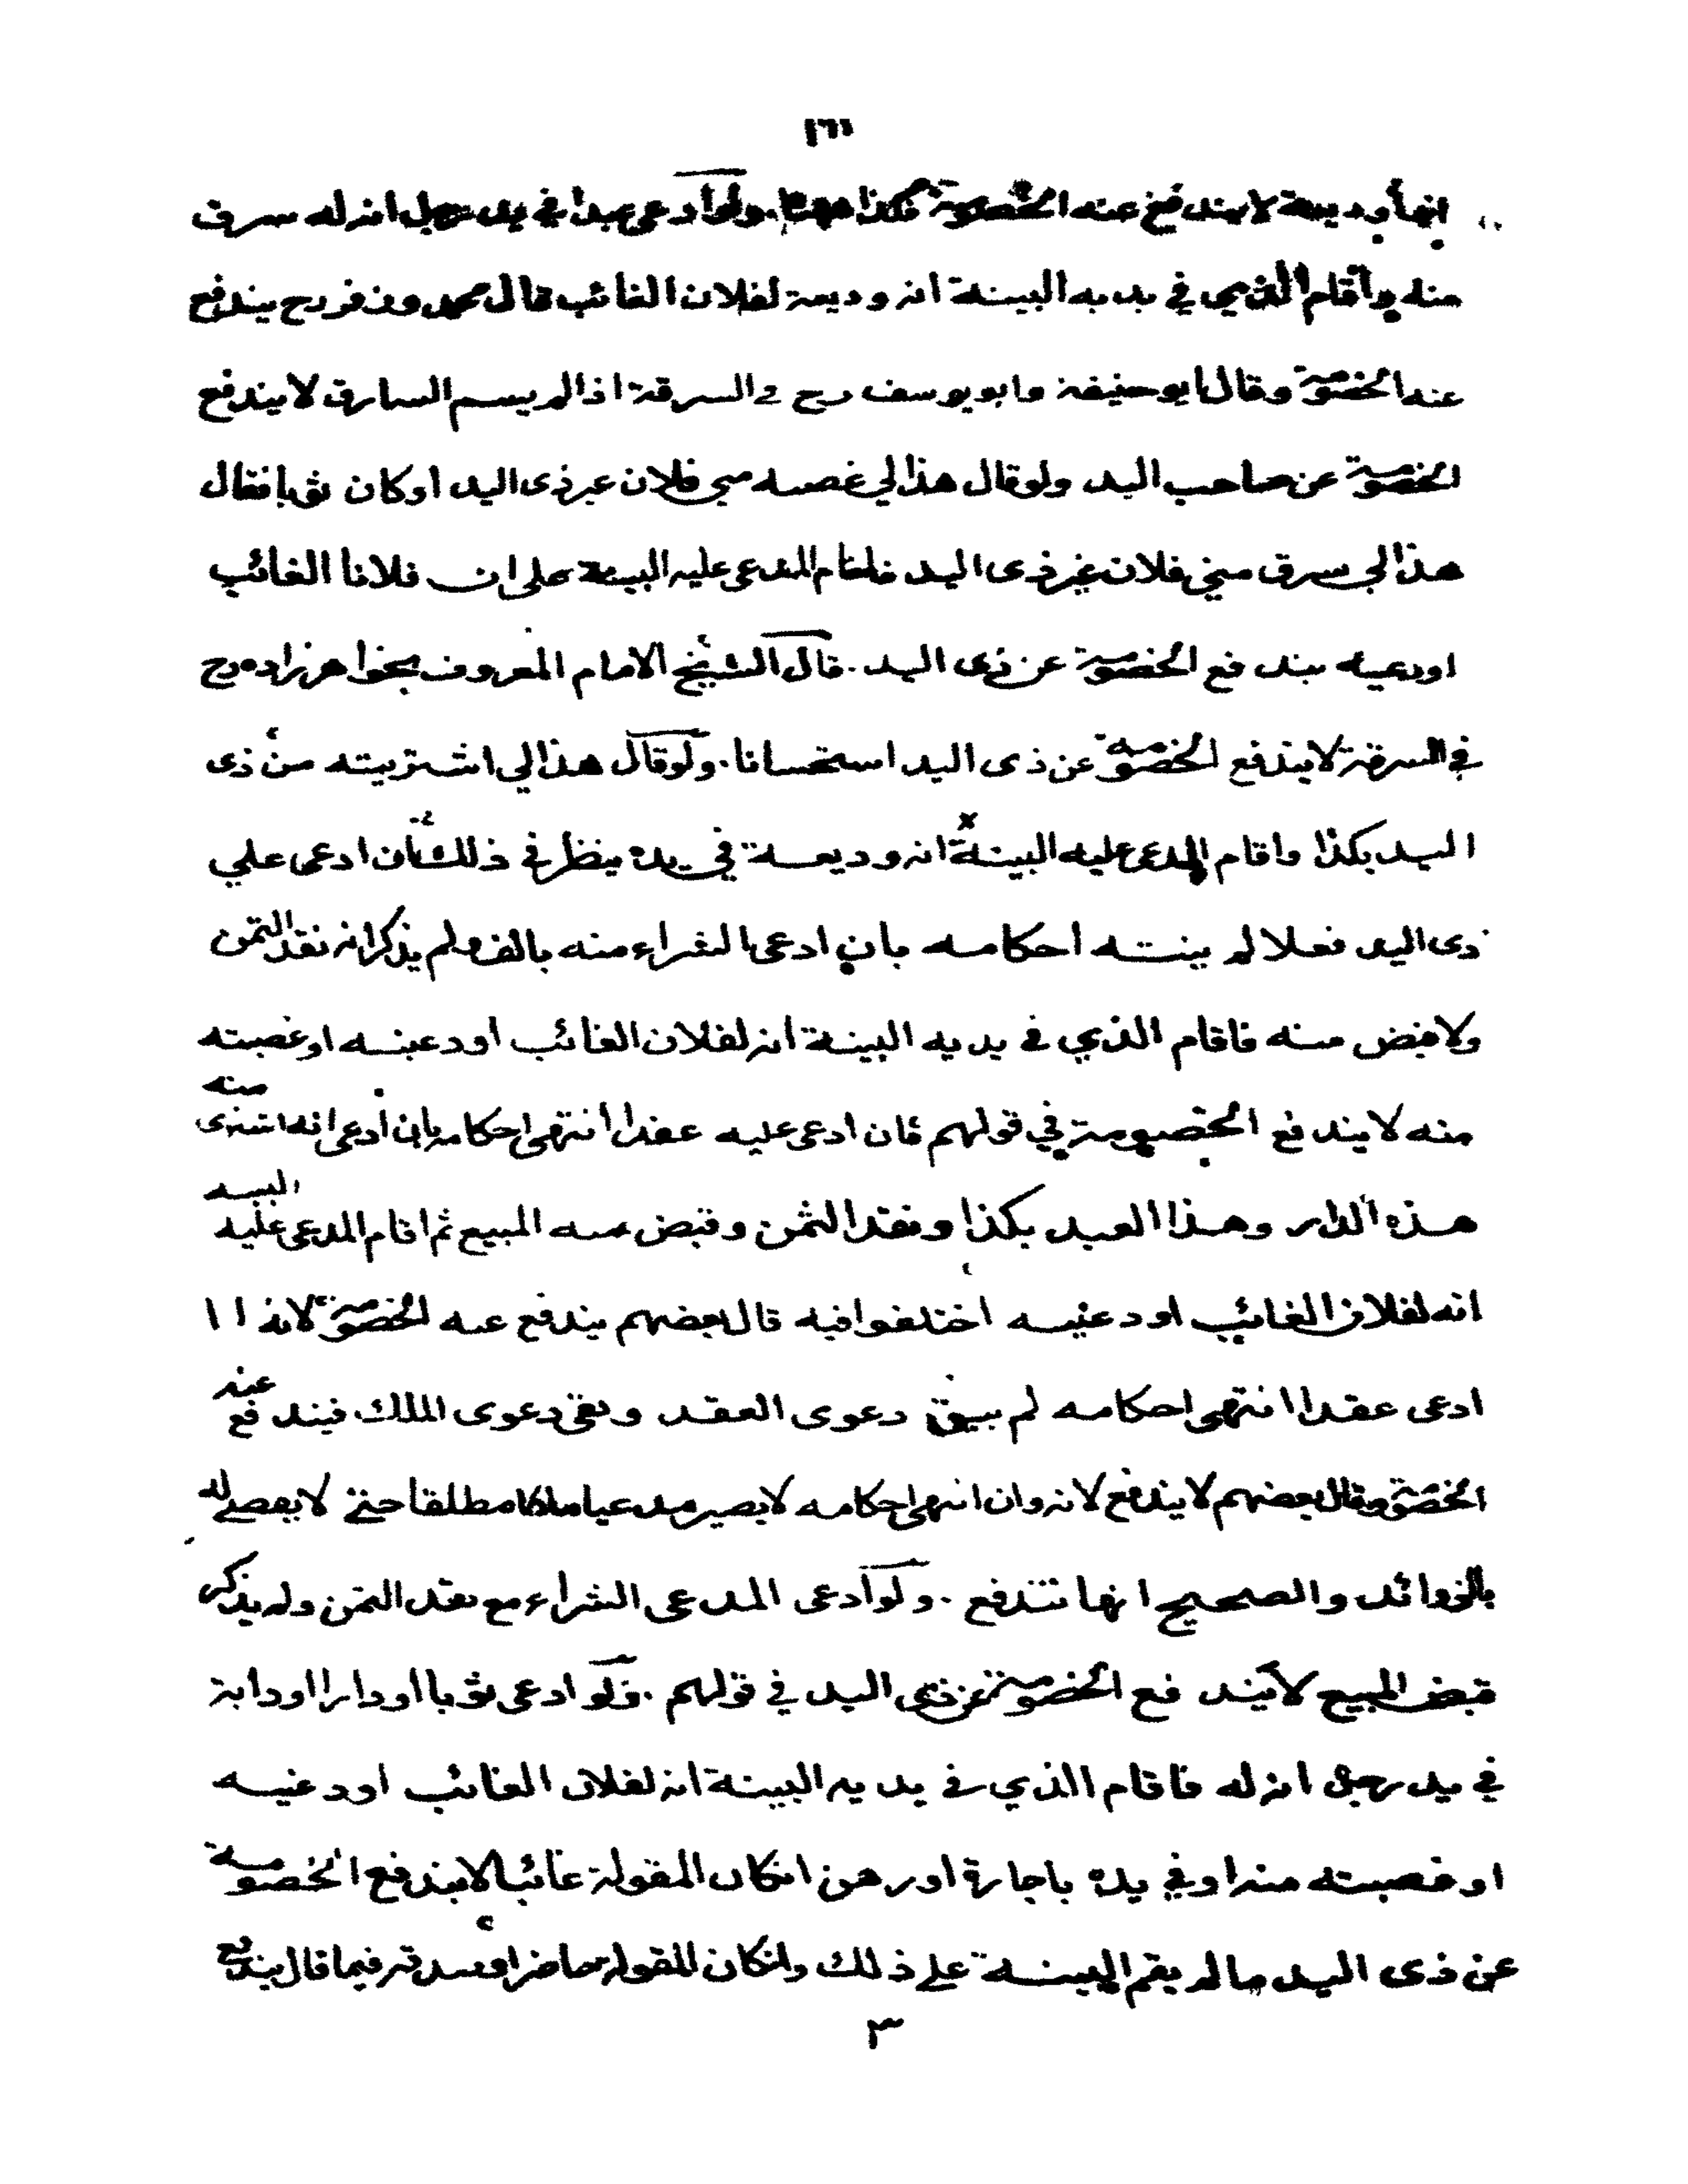 انها وديعة لا يندفع عنه الخصومة فكذا ههنا. ولو ادعى عبدا في يد رجل انه له سرق
منه واقام الذي في يديه البينة انه وديعة لفلان الغائب قال محمد وزفر رح يندفع
عنه الخصومة وقال ابو حنيفة وابو يوسف رح في السرقة اذا لم يسم السارق لا يندفع
الخصومة عن صاحب اليد ولو قال هذا لي غصبه مني فلان غير ذى اليد او كان ثوبا فقال
هذا لي سرق مني فلان غير ذى اليد فاقام المدعى عليه البينة على ان فلانا الغائب
اودعنيه يندفع الخصومة عن ذى اليد. قال الشيخ الامام المعروف بخواهر زاده رح
في السرقة لا يندفع الخصومة عن ذى اليد استحسانا. ولو قال هذا لي اشتريته من ذى
اليد بكذا واقام المدعى عليه البينة انه وديعة في يده ينظر في ذلك ان ادعى علي
ذى اليد فعلا لم ينته احكامه بان ادعى الشراء منه بالف ولم يذكر انه نقد الثمن
ولا قبض منه فاقام الذي في يديه البينة انه لفلان الغائب اودعنيه او غصبته
منه لا يندفع الخصومة في قولهم فان ادعى عليه عقدا انتهى احكامه بان ادعى انه اشترى منه
هذه الدار وهذا العبد بكذا ونقد الثمن وقبض منه المبيع ثم اقام المدعى عليه البينه
انه لفلان الغائب اودعنيه اختلفوا فيه قال بعضهم يندفع عنه الخصومة لانه اا
ادعى عقدا انتهى احكامه لم يبق دعوى العقد وبقى دعوى الملك فيندفع عنه
الخصومة وقال بعضهم لا يندفع لانه وان انتهى احكامه لا يصير مدعيا ملكا مطلقا حتى لا يقضى له
بالزوائد والصحيح انها تندفع. ولو ادعى المدعى الشراء مع نقد الثمن ولم يذكر
قبض المبيع لا يندفع الخصومة عن ذى اليد في قولهم. ولو ادعى ثوبا او دارا او دابة
في يد رجل انه له فاقام الذي في يديه البينة انه لفلان الغائب اودعنيه
او غصبته منه او في يده باجارة او رهن انكان المقوله غائبا لا يندفع الخصومة
عن ذى اليد ما لم يقم البينة على ذلك وانكان المقوله حاضرا وصدقه فيما قال يندفع
٣